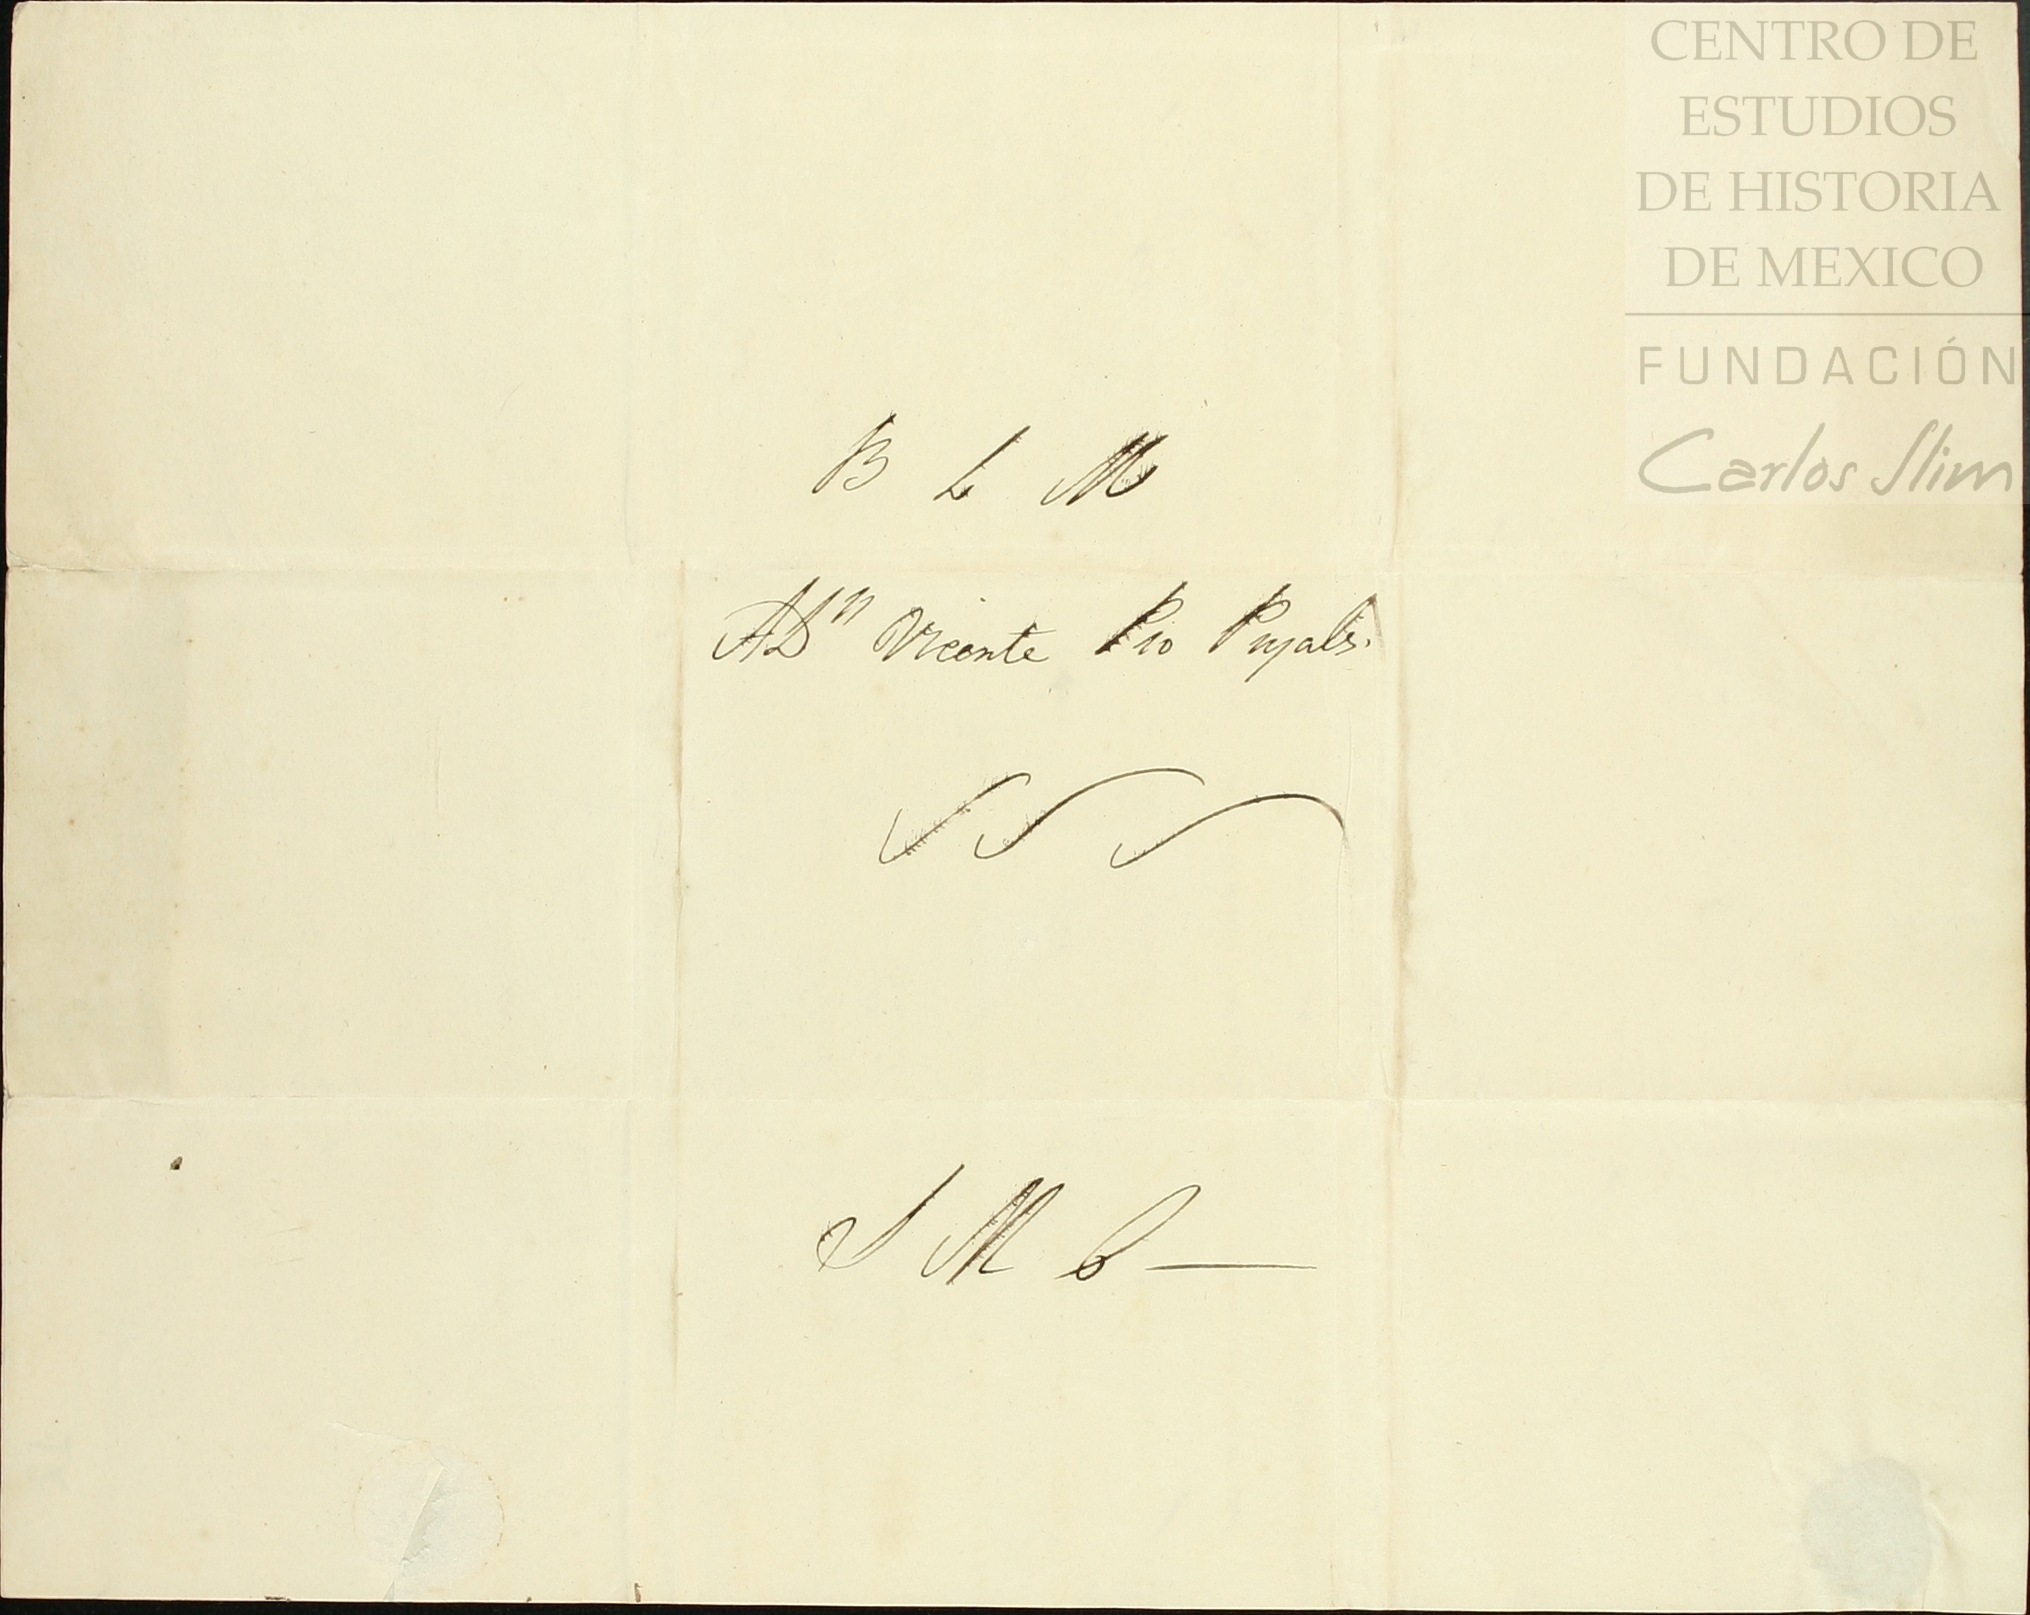 CENTRO DE
ESTUDIOS
DE HISTORIA
DE MEXICO
FUNDACIÓN
Carlos Slim
B L M
A Dn Vicente Pio Pujals.
S S S
S M C